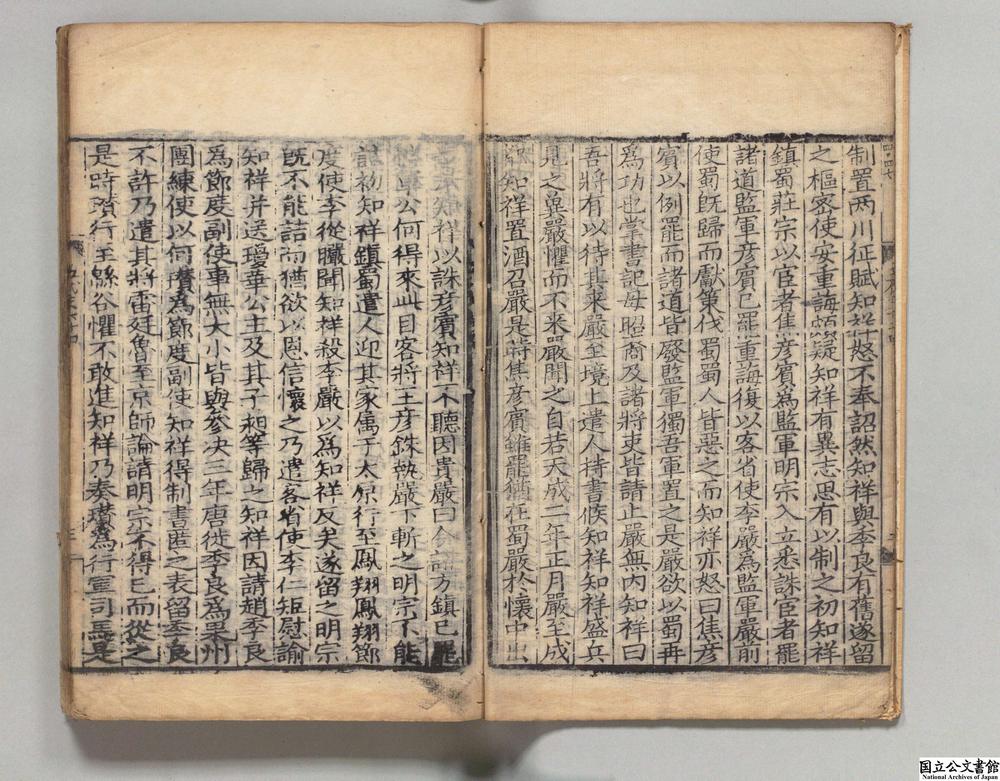 制置两川征賦知祥怒不奉詔然知祥與季良有舊遂留
之樞密使安重誨頗疑知祥有異志思有以制之初知祥
鎮蜀莊宗以宦者焦彦賓爲監軍明宗入立悉誅宦者罷
諸道監軍彦賓已罷重誨復以客省使李嚴爲監軍嚴前
使蜀既歸而獻策伐蜀蜀人皆惡之而知祥亦怒曰焦彦
賓以例罷而諸道皆廢監軍獨吾軍置之是嚴欲以蜀再
爲功也掌書記母昭裔及諸將吏皆請止嚴無内知祥曰
吾將有以待其來嚴至境上遣人持書候知祥知祥盛兵
見之冀嚴懼而不來嚴聞之自若天成二年正月嚴至成
都知祥置酒召嚴是時焦彦賓雖罷猶在蜀嚴於懷中出
詔示知祥以誅彦賓知祥不聽因責嚴曰今諸方鎮已罷
監軍公何得來此目客將王彦銖執嚴下斬之明宗不能
詰初知祥鎮蜀遣人迎其家屬于太原行至鳳翔鳳翔節
度使李從曮聞知祥殺李嚴以爲知祥反矣遂留之明宗
既不能詰而猶欲以恩信懷之乃遣客省使李仁矩慰諭
知祥并送瓊華公主及其子昶等歸之知祥因請趙季良
爲節度副使事無大小皆與參决三年唐徙季良爲果州
團練使以何瓚爲節度副使知祥得制書匿之表留季良
不許乃遣其將雷廷魯至京師論請明宗不得已而從之
是時瓚行至緜谷懼不敢進知祥乃奏瓚爲行軍司馬是
国立公文書館
National Archives of Japan